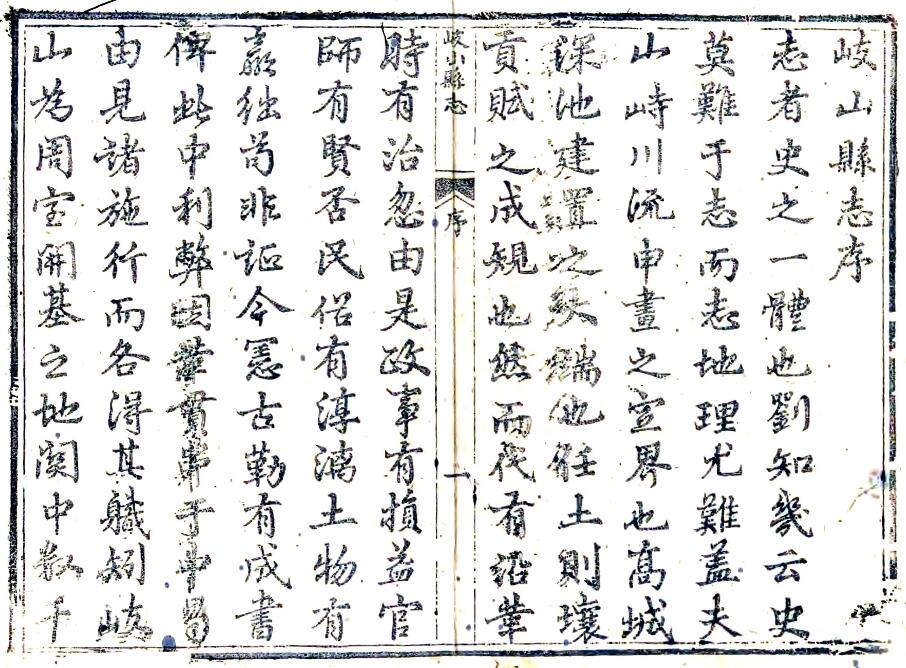 岐山縣志序
志者史之一體也劉知幾云史
莫難于志而志地理尤難蓋夫
山峙川流申畫之定界也高城
深池建置之端也任土則壤
貢賦之成規也然而代有沿革
岐山縣志 序 一
時有治忽由是政事有損益官
師有賢否民俗有淳漓土物有
羸絀苟非証今憲古勒有成書
俾此中利弊因革貫串于中曷
由見諸施行而各得其職矧岐
山為周室開基之地関中数千